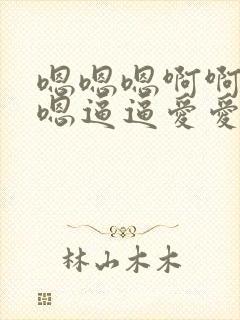 嗯嗯嗯啊啊
嗯逼逼爱爱
林山木木